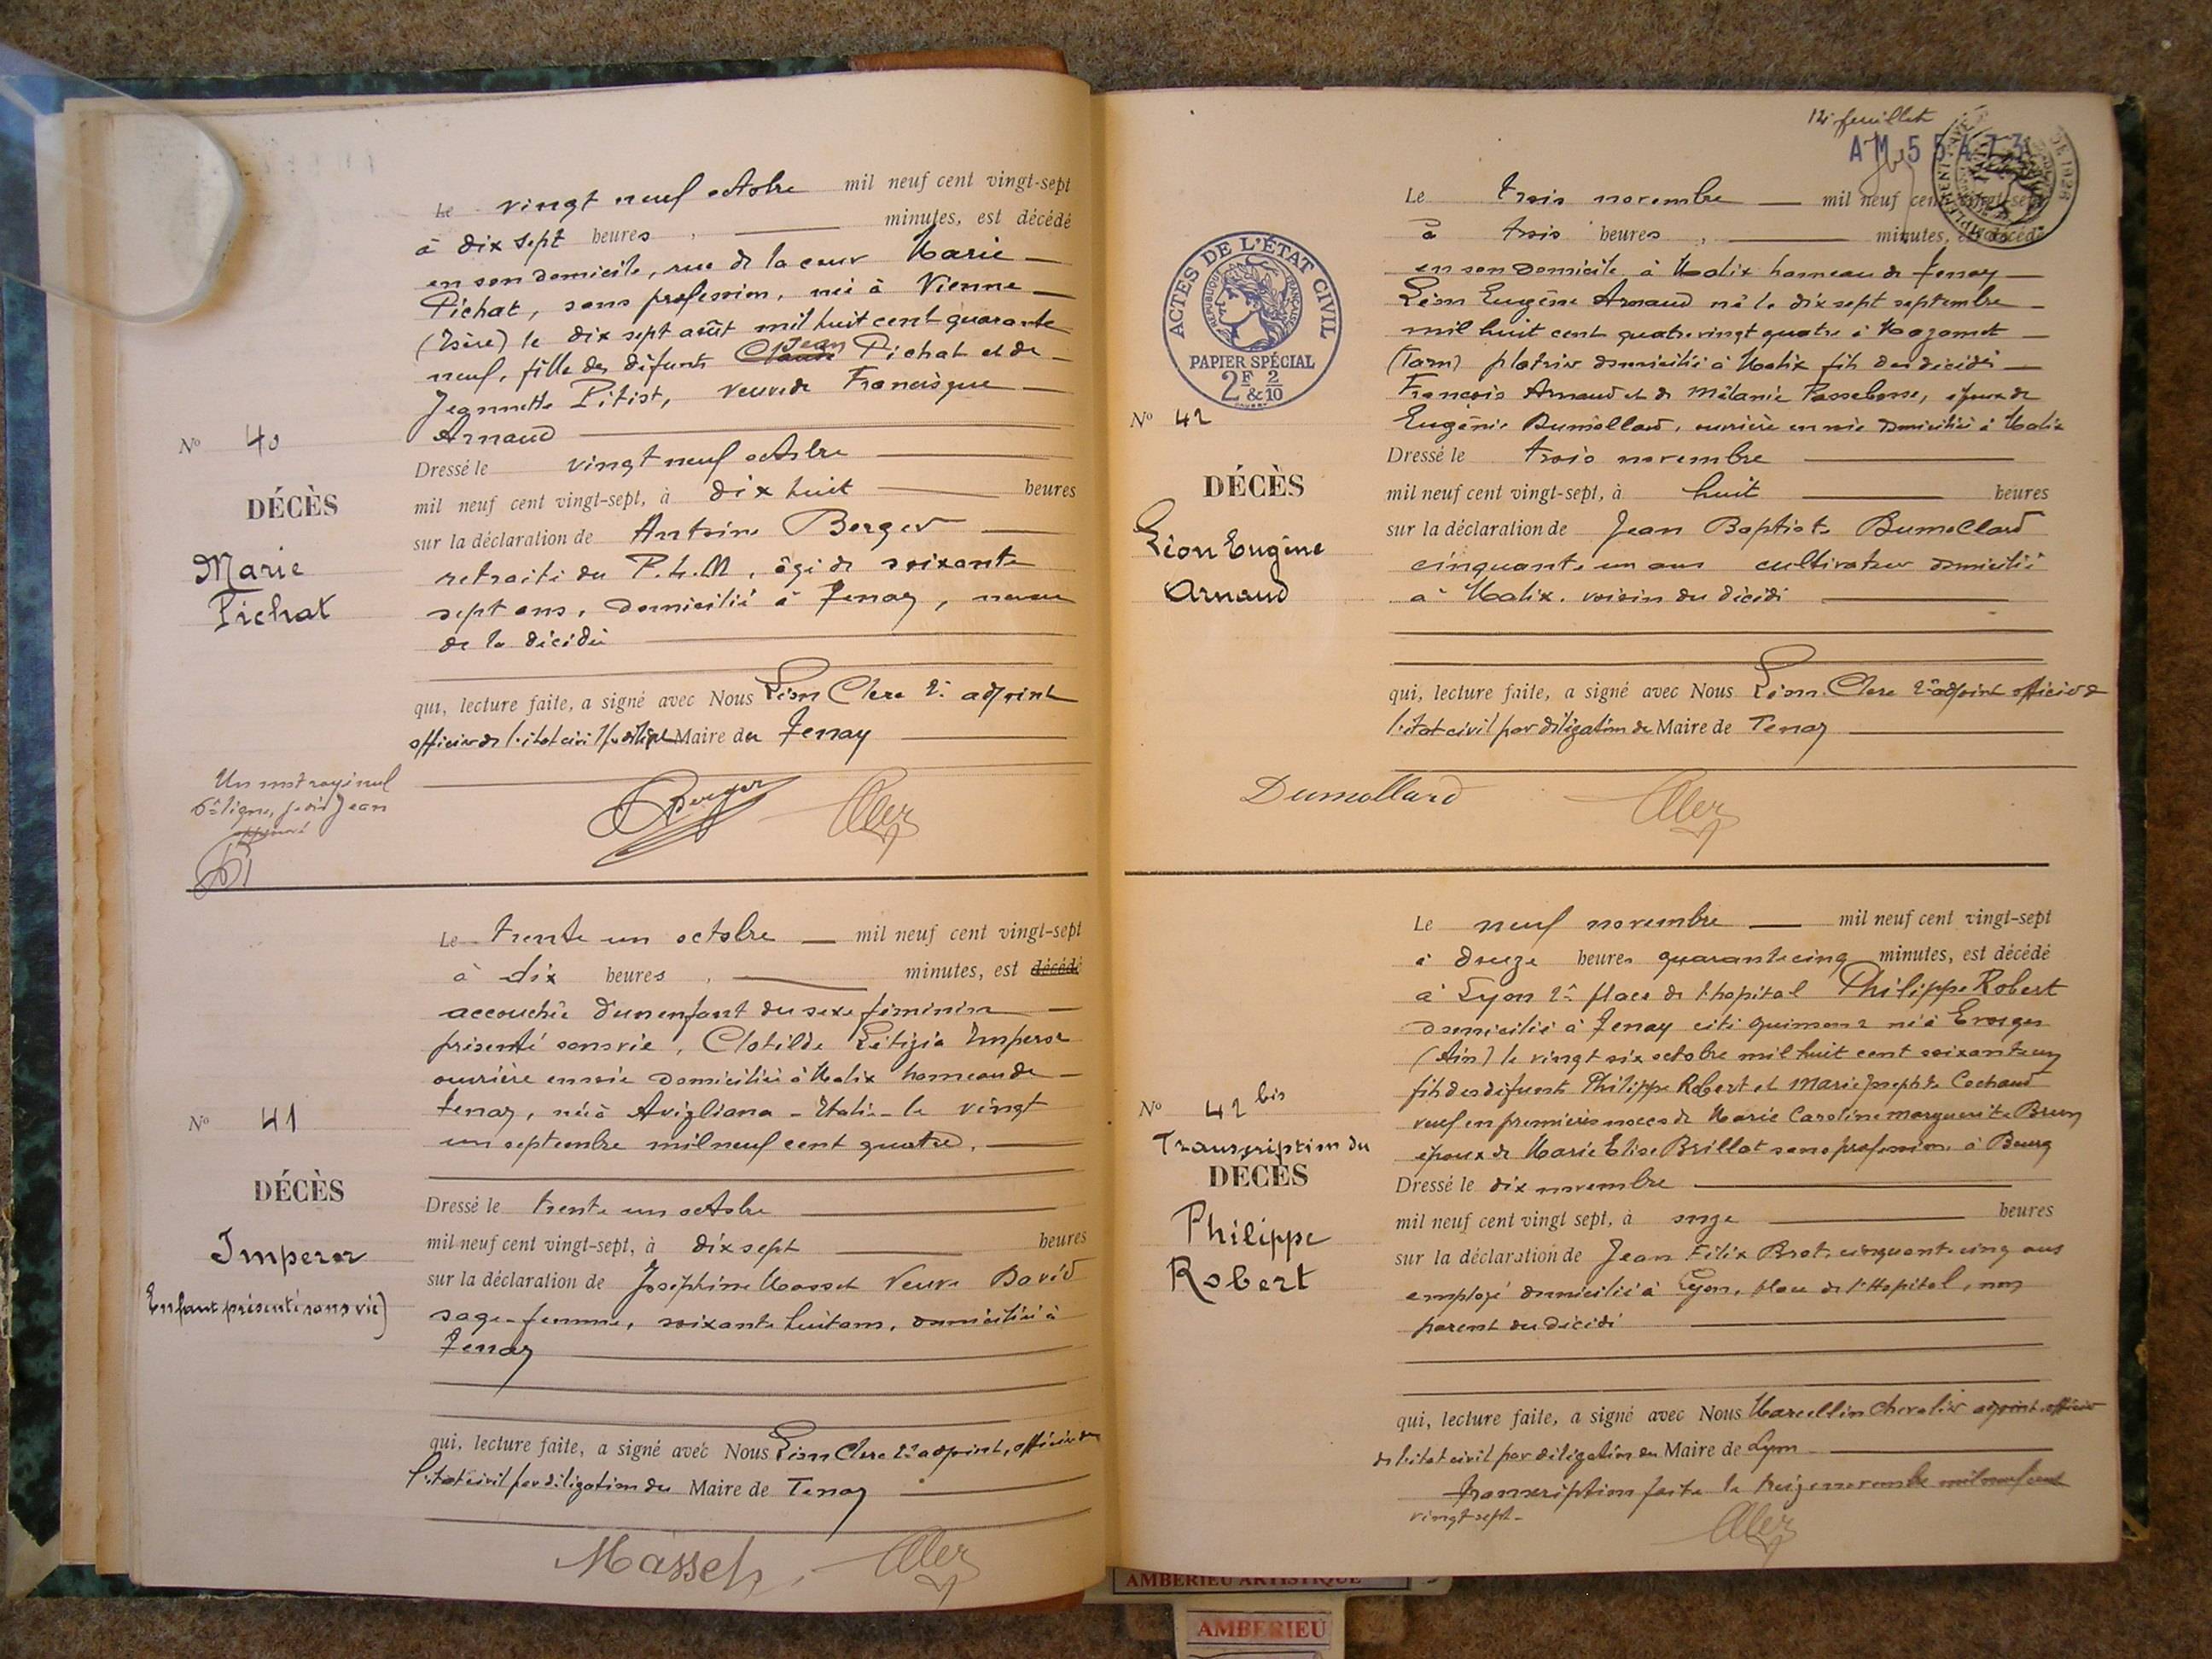 Le vingt neuf octobre mil neuf cent vingt-sept
à dix sept heures, minutes, est décédé
en son domicile, rue de la cour Marie
Pichat, sans profession, née à Vienne
(Isère) le dix sept août mil huit cent quarante
neuf, fille des défunts Claude Jean Pichat et de
Jeannette Pitist, veuve de Francisque
Arnaud
No 40
DÉCÈS
Marie
Pichat
Dressé le vingt neuf octobre
mil neuf cent vingt-sept, à dix huit heures
sur la déclaration de Antoine Berger
retraité du P.L.M, âgé de soixante
sept ans, domicilié à Tenay, neveu
de la décédée
qui, lecture faite, a signé avec Nous Léon Clerc 2e adjoint
officier de l'état civil Maire de Tenay
Un mot rayé nul
6e ligne, Jean
approuvé
Berger Clerc
Le trente un octobre mil neuf cent vingt-sept
à dix heures, minutes, est décédé
accouchée d'un enfant du sexe féminin
présenté sans vie, Clotilde Létizia Imperor
ouvrière en soie domiciliée à Malix hameau de
Tenay, née à Avigliana - Italie - le vingt
un septembre mil neuf cent quatre.
No 41
DÉCÈS
Imperor
Enfant présenté sans vie)
Dressé le trente un octobre
mil neuf cent vingt-sept, à dix sept heures
sur la déclaration de Joséphine Masset Veuve David
sage-femme, soixante huit ans, domiciliée à
Tenay
qui, lecture faite, a signé avec Nous Léon Clerc 2e adjoint, officier de
l'état civil par délégation du Maire de Tenay
Masset Clerc
12e feuillet
AM 55473
Le trois novembre mil neuf cent vingt-sept
à trois heures, minutes, est décédé
en son domicile à Malix hameau de Tenay
Léon Eugène Arnaud né le dix sept septembre
mil huit cent quatre vingt quatre à Mazamet
(Tarn) platrier domicilié à Malix fils des décédés
François Arnaud et de Mélanie Passebosse, époux de
Eugénie Dumollard, ouvrière en soie domiciliée à Malix
ACTES DE L'ÉTAT CIVIL
RÉPUBLIQUE FRANÇAISE
PAPIER SPÉCIAL
2F & 2/10
No 42
DÉCÈS
Léon Eugène
Arnaud
Dressé le trois novembre
mil neuf cent vingt-sept, à huit heures
sur la déclaration de Jean Baptiste Dumollard
cinquante un ans cultivateur domicilié
à Malix. voisin du décédé
qui, lecture faite, a signé avec Nous Léon Clerc 2e adjoint officier de
l'état civil par délégation du Maire de Tenay
Dumollard Clerc
Le neuf novembre mil neuf cent vingt-sept
à douze heures quarante cinq minutes, est décédé
à Lyon 2e place de l'hopital Philippe Robert
domicilié à Tenay cité Quimonz né à Evosges
(Ain) le vingt six octobre mil huit cent soixante un
fils des défunts Philippe Robert et Marie Josephte Cochaud
veuf en premières noces de Marie Caroline Marguerite Brun
époux de Marie Elise Brillat sans profession à Bourg
No 42 bis
Transcription du
DÉCÈS
Philippe
Robert
Dressé le dix novembre
mil neuf cent vingt sept, à onze heures
sur la déclaration de Jean Félix Brot cinquante cinq ans
employé domicilié à Lyon, place de l'Hopital, non
parent du décédé
qui, lecture faite, a signé avec Nous Marcellin Chevalier adjoint officier
de l'état civil par délégation du Maire de Lyon
transcription faite le treize novembre mil neuf cent
vingt sept.
Clerc
AMBERIEU ARTISTIQUE
AMBERIEU